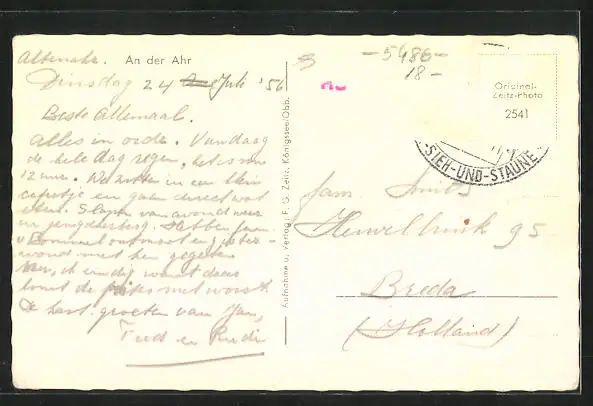 Altenahr. An der Ahr
Dinsdag 24 Juli '56
Beste Allemaal.
Alles in orde. Vandaag
de hele dag regen, het is nu
12 uur. We zitten in een klein
cafeetje en gaan direct wat
eten. Slapen vanavond weer
in jeugdherberg. Hebben fam.
v Bommel ontmoet en gister-
avond met hen gegeten
Nou, ik eindig want daar
komt de met worst
De hart. groeten van Jan,
Trus en Rudi
Aufnahme u. Verlag: F. G. Zeitz, Königssee/Obb.
- 5486 -
18 -
Original-
Zeitz-Photo
2541
-SIEH-UND-STAUNE-
fam. Smits
Heuvelbrink 95
Breda
(Holland)